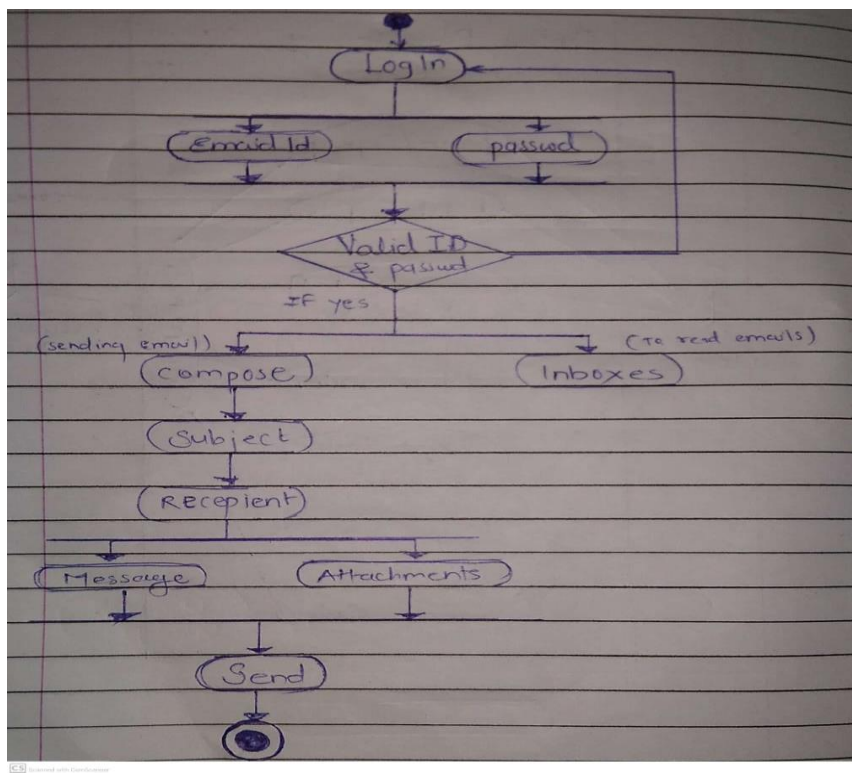 LogIn
Email Id
passwd
Valid ID
& passwd
IF yes
(sending email)
(To read emails)
compose
Inboxes
Subject
Recepient
Message
Attachments
Send
CS Scanned with CamScanner